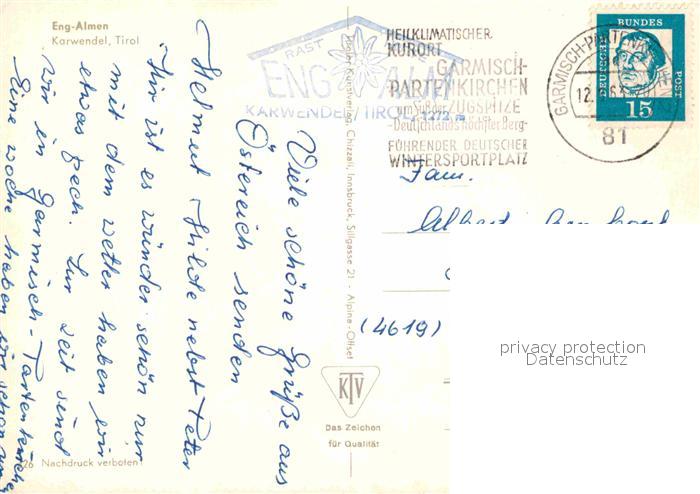 Eng-Almen
Karwendel, Tirol
RAST
ENG ALM
KARWENDEL/TIROL, 1272 m
HEILKLIMATISCHER
KURORT
GARMISCH-
PARTENKIRCHEN
am Fuß der ZUGSPITZE
-Deutschlands höchster Berg-
FÜHRENDER DEUTSCHER
WINTERSPORTPLATZ
GARMISCH-PARTENKIRCHEN
12.
81
DEUTSCHE BUNDES POST
15
Viele schöne Grüße aus
Östereich senden
Helmut, Hilde nebst Peter
Hir ist es wunder schön nur
mit dem Wetter haben wir
etwas pech. Zur Zeit sind
wir in Garmisch-Partenkirch
Eine woche haben wir schon rum
Chizzali, Innsbruck, Sillgasse 21 - Alpina-Offset
Fam.
Albert
(4619)
KTV
Das Zeichen
für Qualität
26 Nachdruck verboten!
privacy protection
Datenschutz